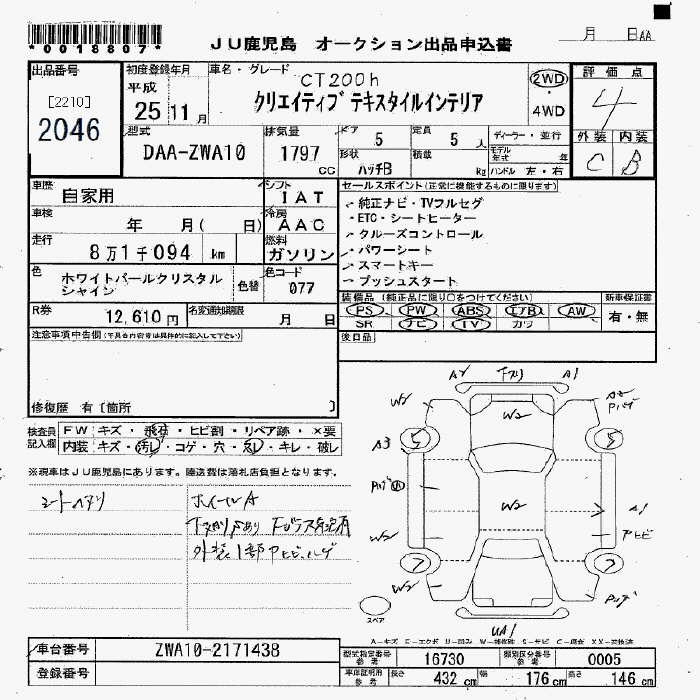 *0018807*
JU鹿児島 オークション出品申込書
月 日AA
出品番号
[2210]
2046
初度登録年月
平成
25 11 月
車名・グレード
CT200h
クリエイティブ テキスタイルインテリア
2WD
4WD
評価点
4
外装 内装
C B
型式
DAA-ZWA10
排気量
1797 CC
ドア 5
定員 5 人
形状 ハッチB
積載 kg
ディーラー・並行
モデル年式 年
ハンドル 左・右
車歴
自家用
シフト
IAT
車検
年 月( 日)
冷房
AAC
走行
8万1千094 km
燃料
ガソリン
色
ホワイトパールクリスタル
シャイン
色替
色コード
077
R券
12,610円
名変通知期限
月 日
セールスポイント(正常に機能するものに限ります)
純正ナビ・TVフルセグ
ETC・シートヒーター
クルーズコントロール
パワーシート
スマートキー
プッシュスタート
装備品(純正品に限り○をつけてください)
新車保証書
PS PW ABS エアB AW
SR ナビ TV カワ
有・無
後日品
注意事項申告欄(不具合内容等は具体的に記入して下さい)
修復歴 有〔箇所 〕
検査員記入欄
FW キズ・飛石・ヒビ割・リペア跡・×要
内装 キズ・汚レ・コゲ・穴・スレ・キレ・破レ
※現車はJU鹿児島にあります。陸送費は落札店負担となります。
ホイールA
A2 A1
W2 W2 A2
5 5
A3
W2
A1
W2 アヒビ
7 7
W2
UA1
スペア
車台番号
ZWA10-2171438
登録番号
型式指定番号 参考
16730
類別区分番号 参考
0005
車庫証明用 参考
長さ 432 cm
幅 176 cm
高さ 146 cm